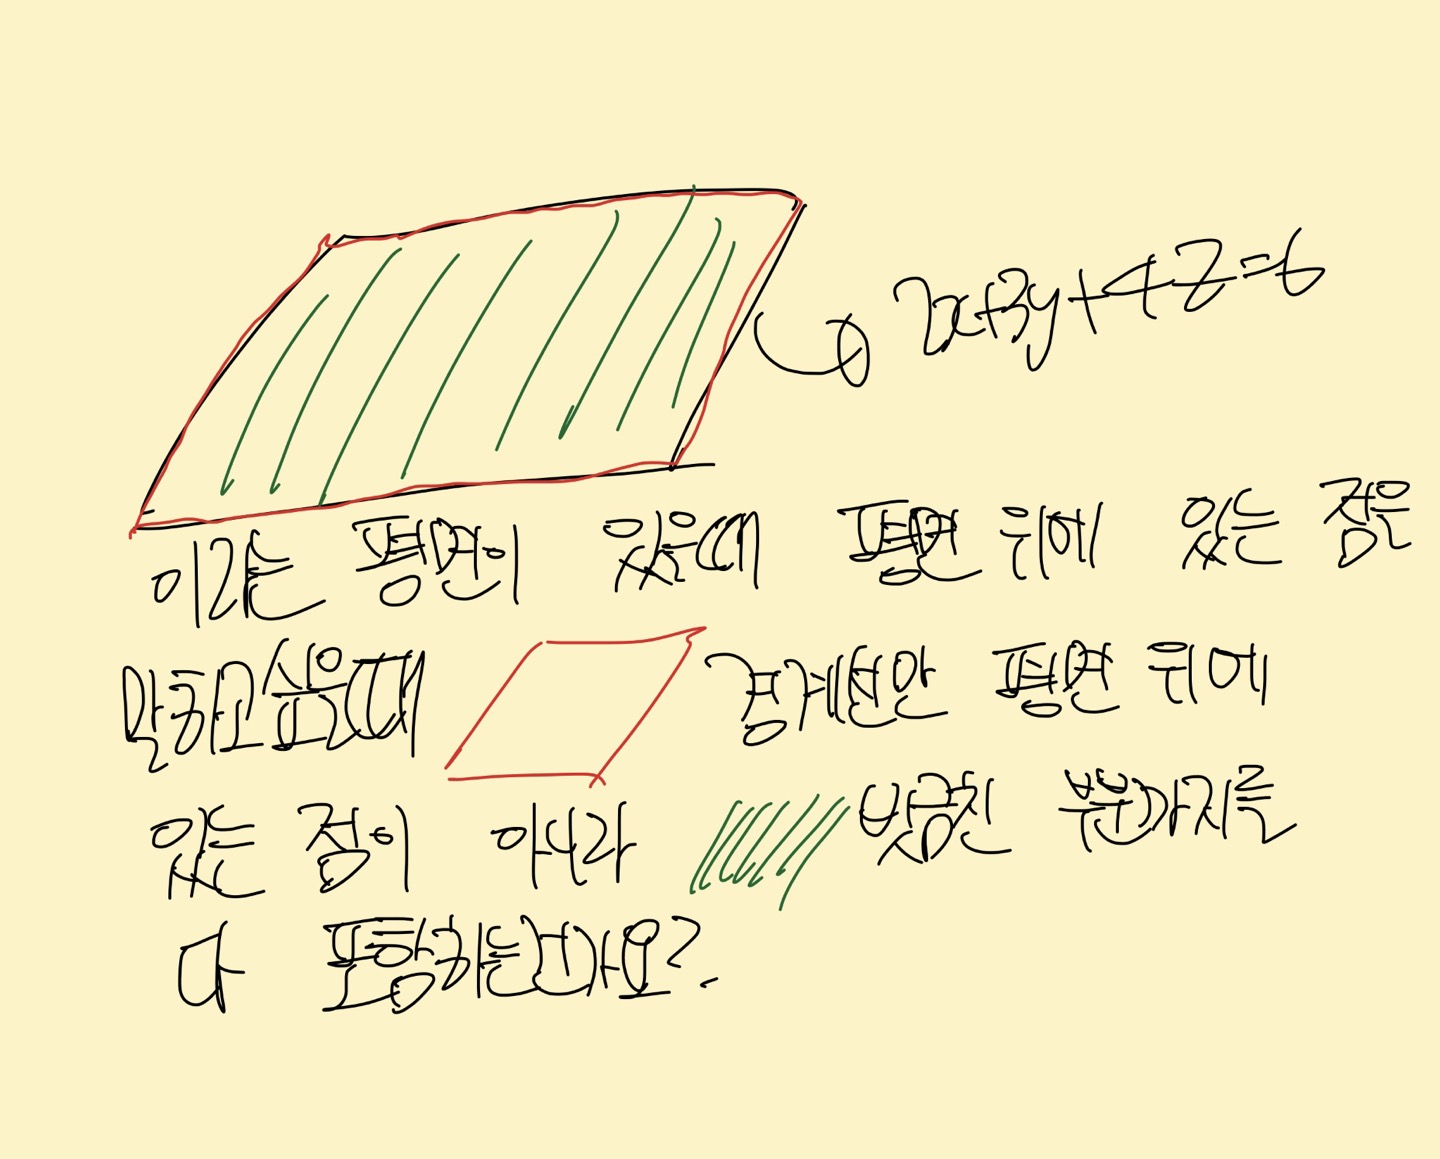 2x+3y+4z=6
이라는 평면이 있을때 평면 위에 있는 점은
말하고싶을때 경계선만 평면 위에
있는 점이 아니라 빗금친 부분까지를
다 포함하는건가요?